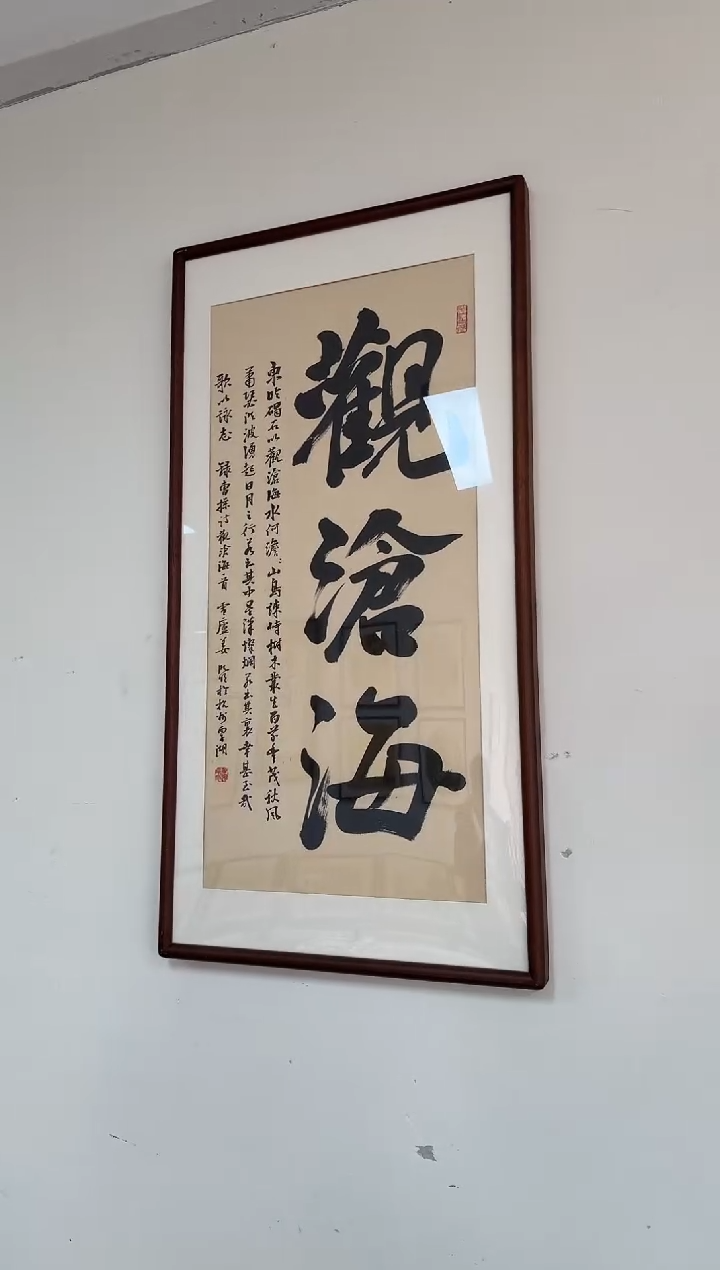 觀滄海
東临碣石以觀滄海水何澹〻山島竦峙樹木叢生百草丰茂秋風
蕭瑟洪波湧起日月之行若出其中星漢燦爛若出其裏幸甚至哉
歌以詠志 錄曹操詩觀滄海一首 廬姜 於杭州 湖